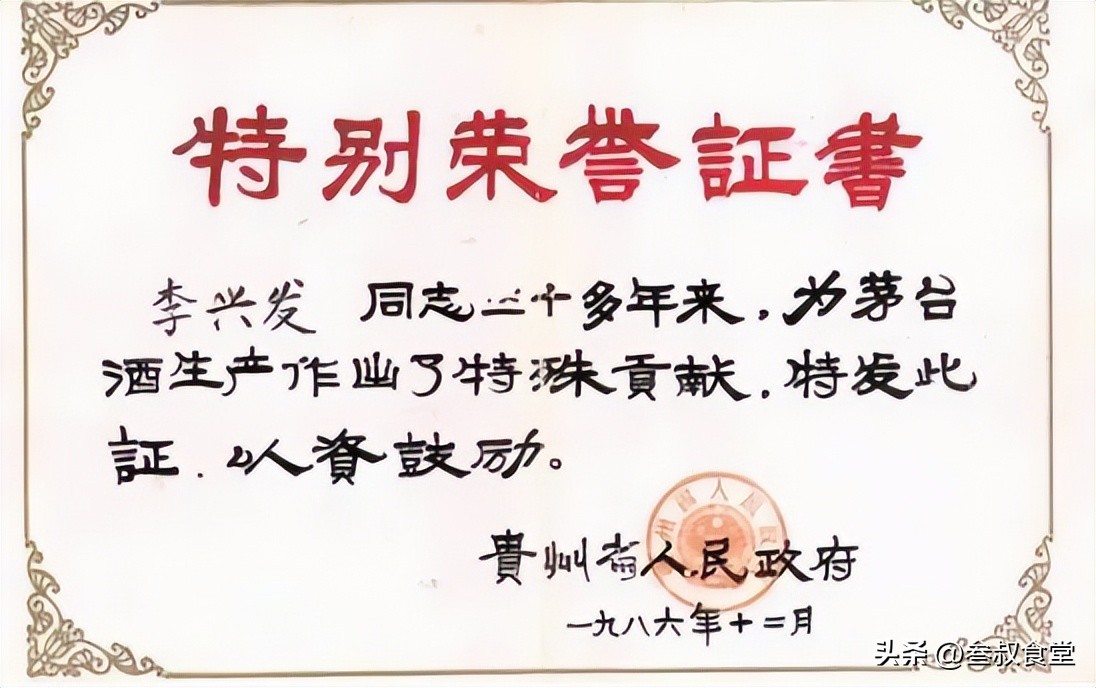 特别荣誉証書
李兴发 同志三十多年来，为茅台
酒生产作出了特殊貢献，特发此
証，以資鼓励。
貴州省人民政府
一九八六年十二月
头条 @叁叔食堂